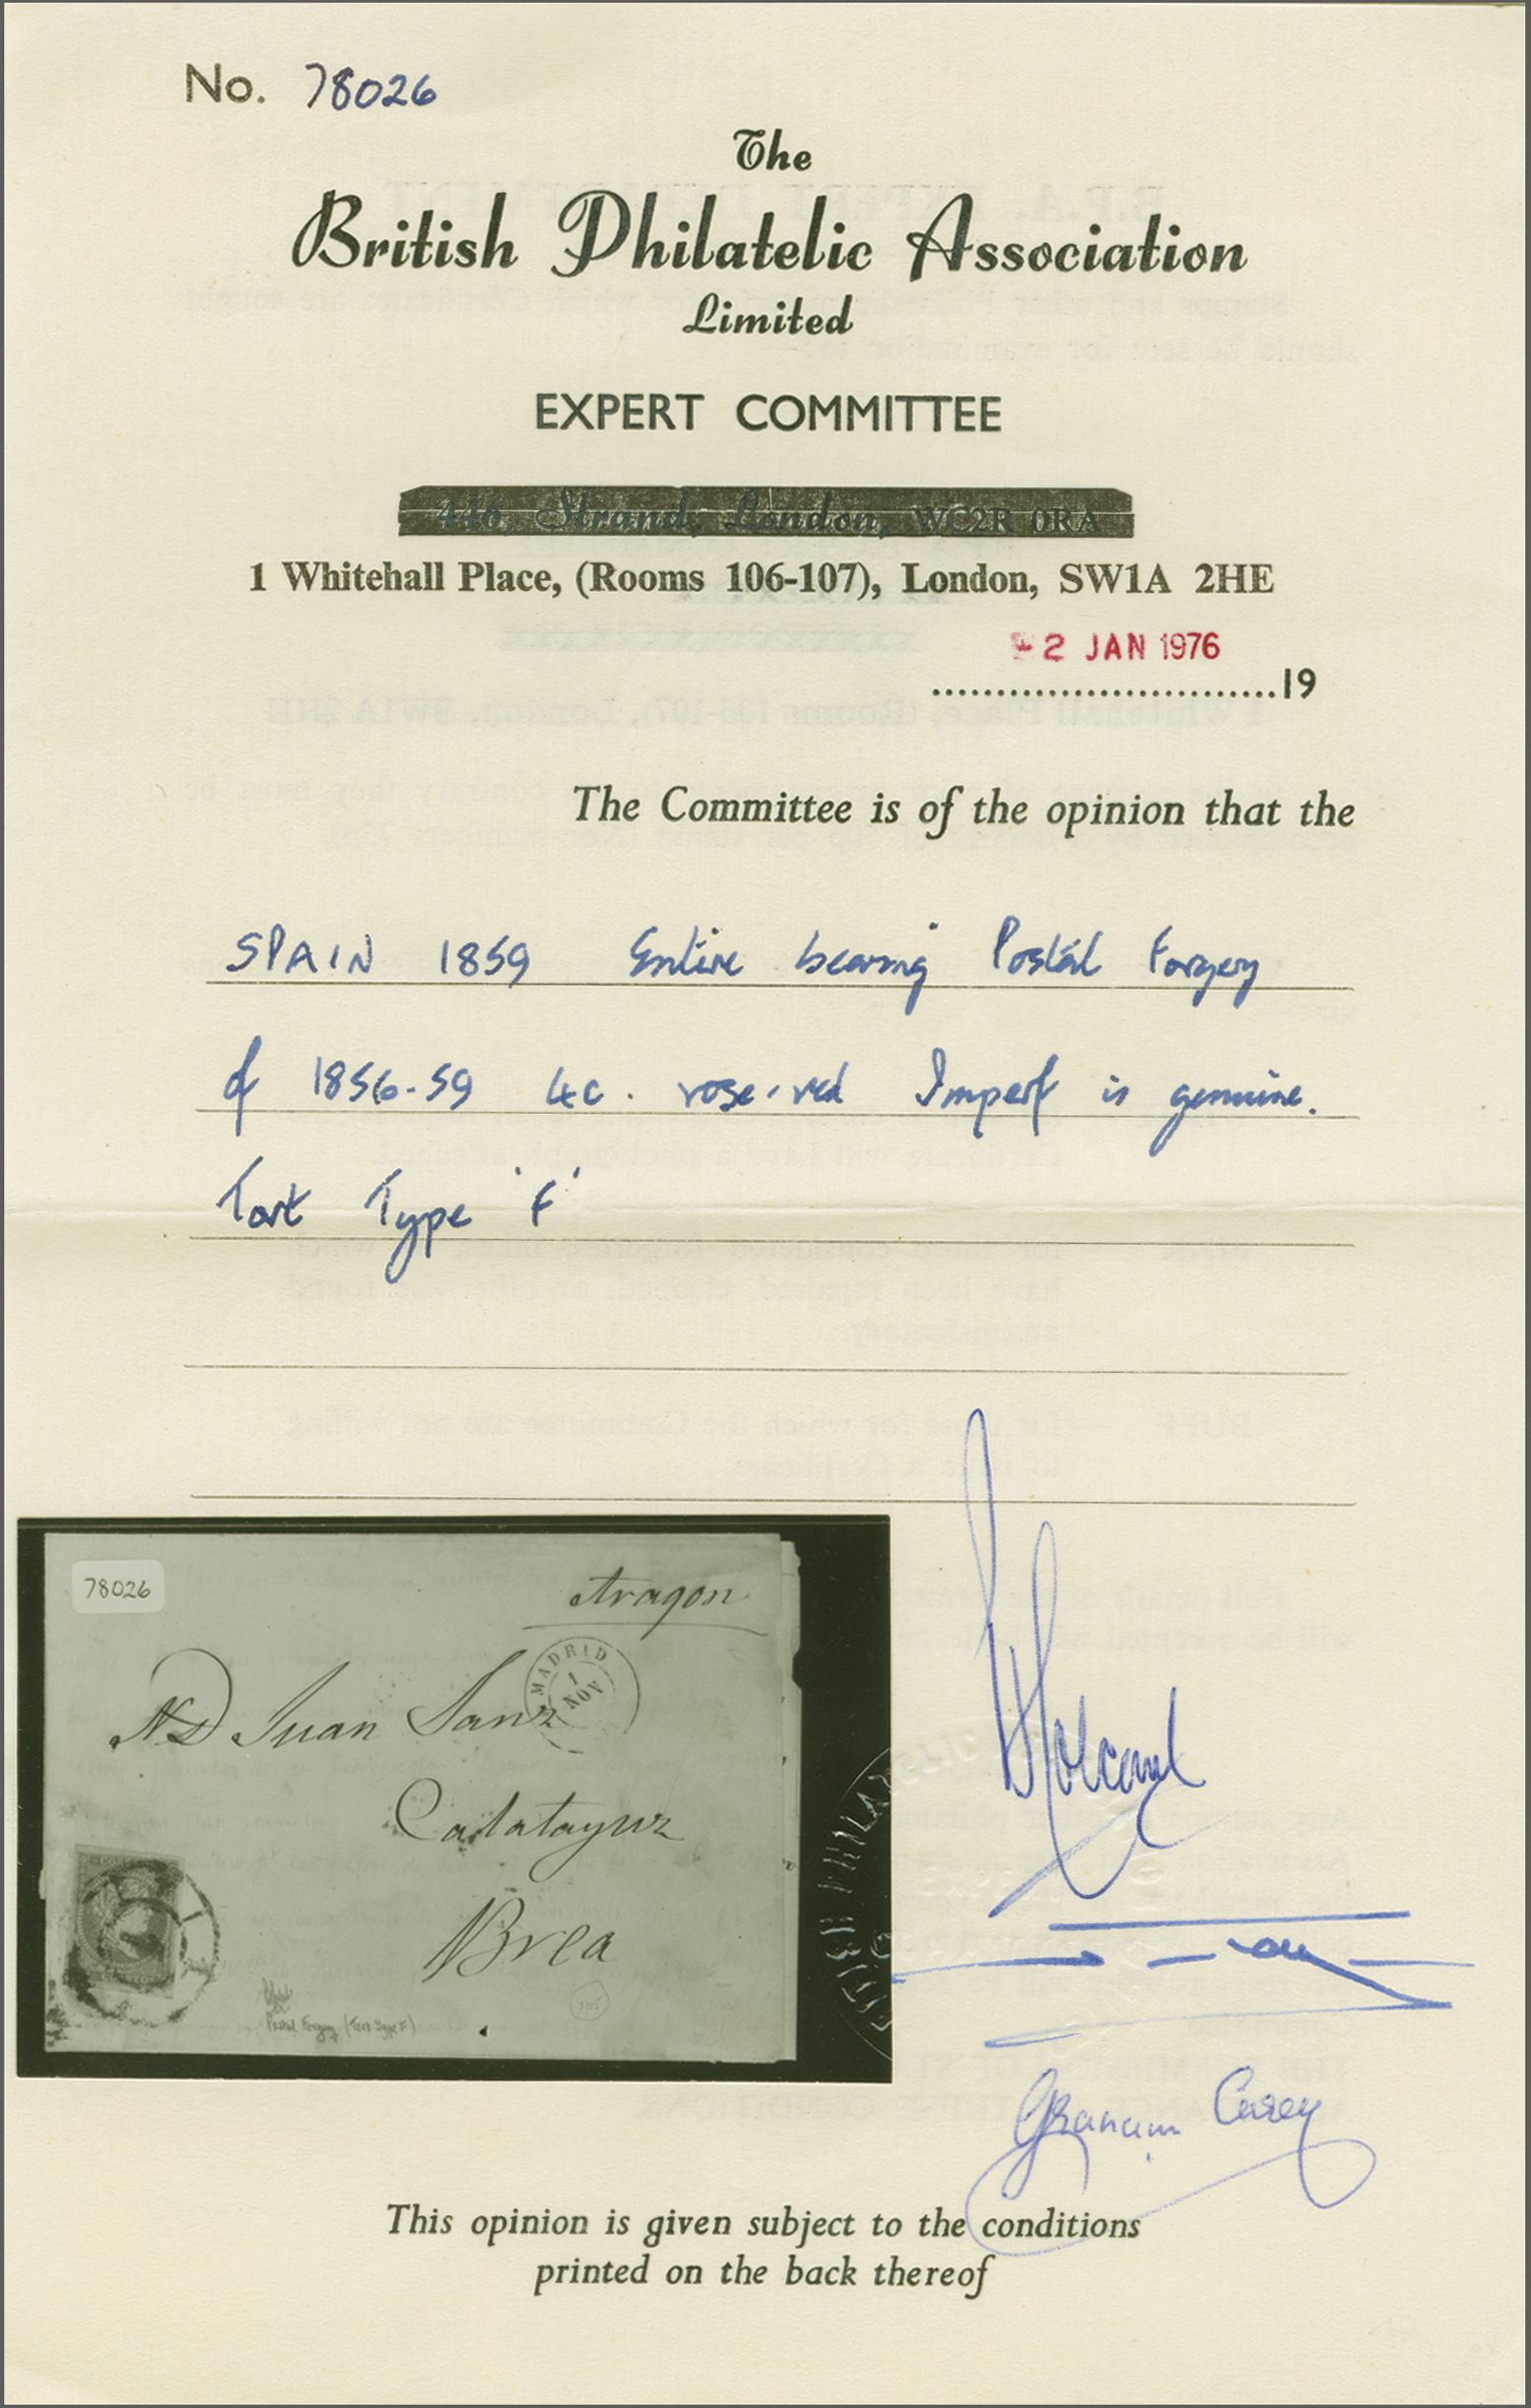 No. 78026
The
British Philatelic Association
Limited
EXPERT COMMITTEE
446, Strand, London, WC2R 0RA
1 Whitehall Place, (Rooms 106-107), London, SW1A 2HE
2 JAN 1976
19
The Committee is of the opinion that the
SPAIN 1859 Entire bearing Postal Forgery
of 1856-59 4c. rose-red Imperf is genuine.
Tort Type 'F'
78026
Aragon
MADRID
1
NOV
Juan Sanz
Calatayuz
Brea
Postal Forgery (Tort Type F)
Graham Carey
This opinion is given subject to the conditions
printed on the back thereof